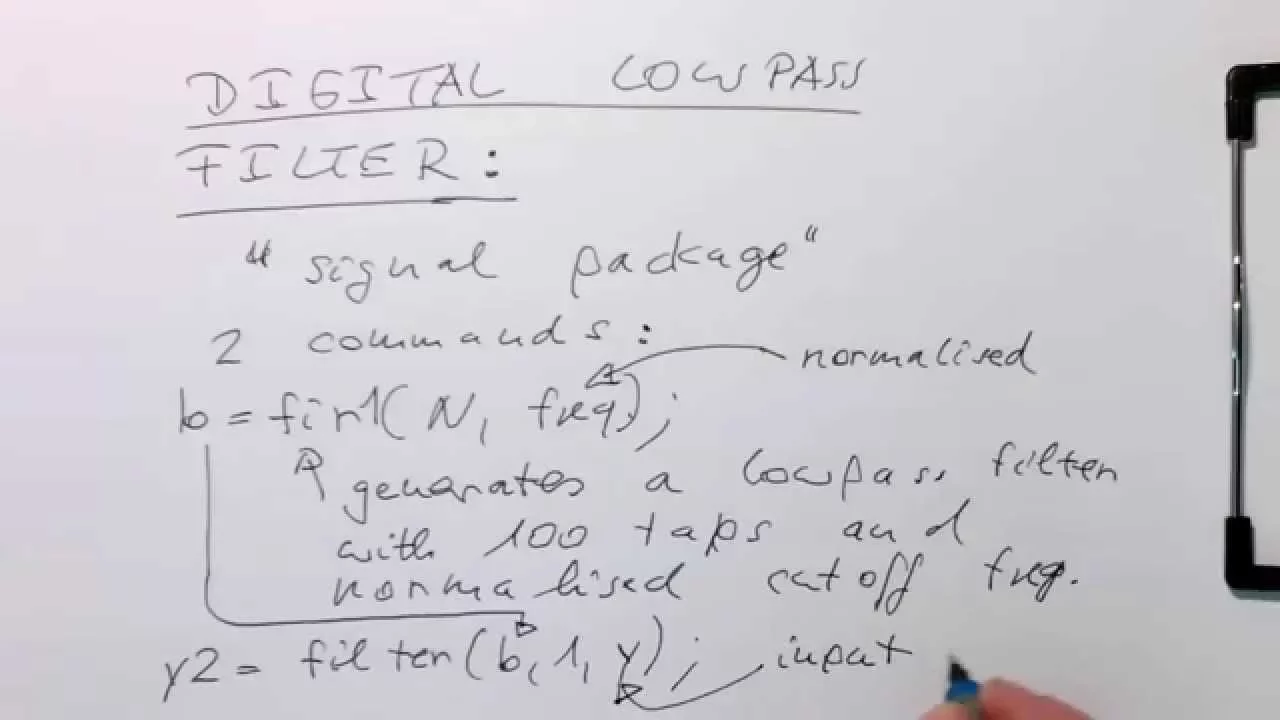 DIGITAL LOWPASS
FILTER:
"signal package"
2 commands:
normalised
b = fir1(N, freq);
generates a lowpass filter
with 100 taps and
normalised cutoff freq.
y2 = filter(b, 1, y); input